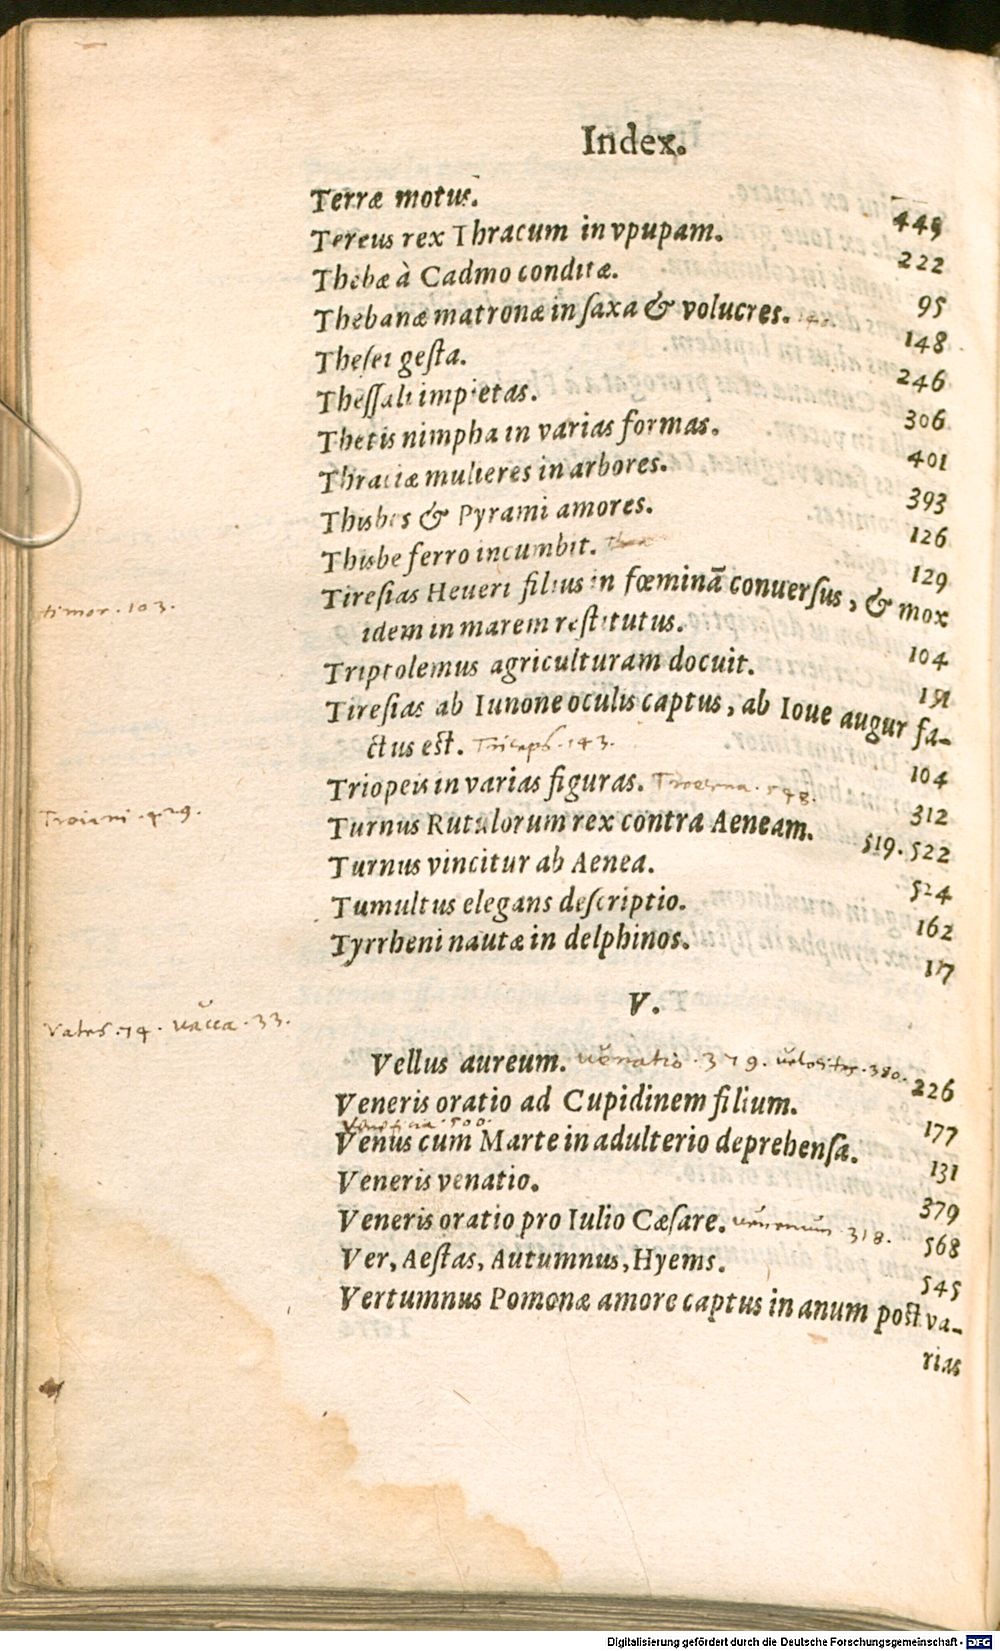 Index.
Terræ motus. 449
Tereus rex Thracum in vpupam. 222
Thebæ à Cadmo conditæ. 95
Thebanæ matronæ in saxa & volucres. 148
Thesei gesta. 246
Thessali impietas. 306
Thetis nimpha in varias formas. 401
Thraciæ mulieres in arbores. 393
Thisbes & Pyrami amores. 126
Thisbe ferro incumbit. 129
timor. 103.
Tiresias Heueri filius in fœminā conuersus, & mox
idem in marem restitutus. 104
Triptolemus agriculturam docuit. 191
Tiresias ab Iunone oculis captus, ab Ioue augur fa-
ctus est. 143. 104
Triopeis in varias figuras. 548. 312
Troiani. 429.
Turnus Rutulorum rex contra Aeneam. 519. 522
Turnus vincitur ab Aenea. 524
Tumultus elegans descriptio. 162
Tyrrheni nautæ in delphinos. 117
V.
Vates. 74. vacca. 33.
Vellus aureum. venatio. 379. velocitas. 380. 226
Veneris oratio ad Cupidinem filium. 177
500.
Venus cum Marte in adulterio deprehensæ. 131
Veneris venatio. 379
Veneris oratio pro Iulio Cæsare. venenum 318. 568
Ver, Aestas, Autumnus, Hyems. 545
Vertumnus Pomonæ amore captus in anum post va-
rias
Digitalisierung gefördert durch die Deutsche Forschungsgemeinschaft - DFG